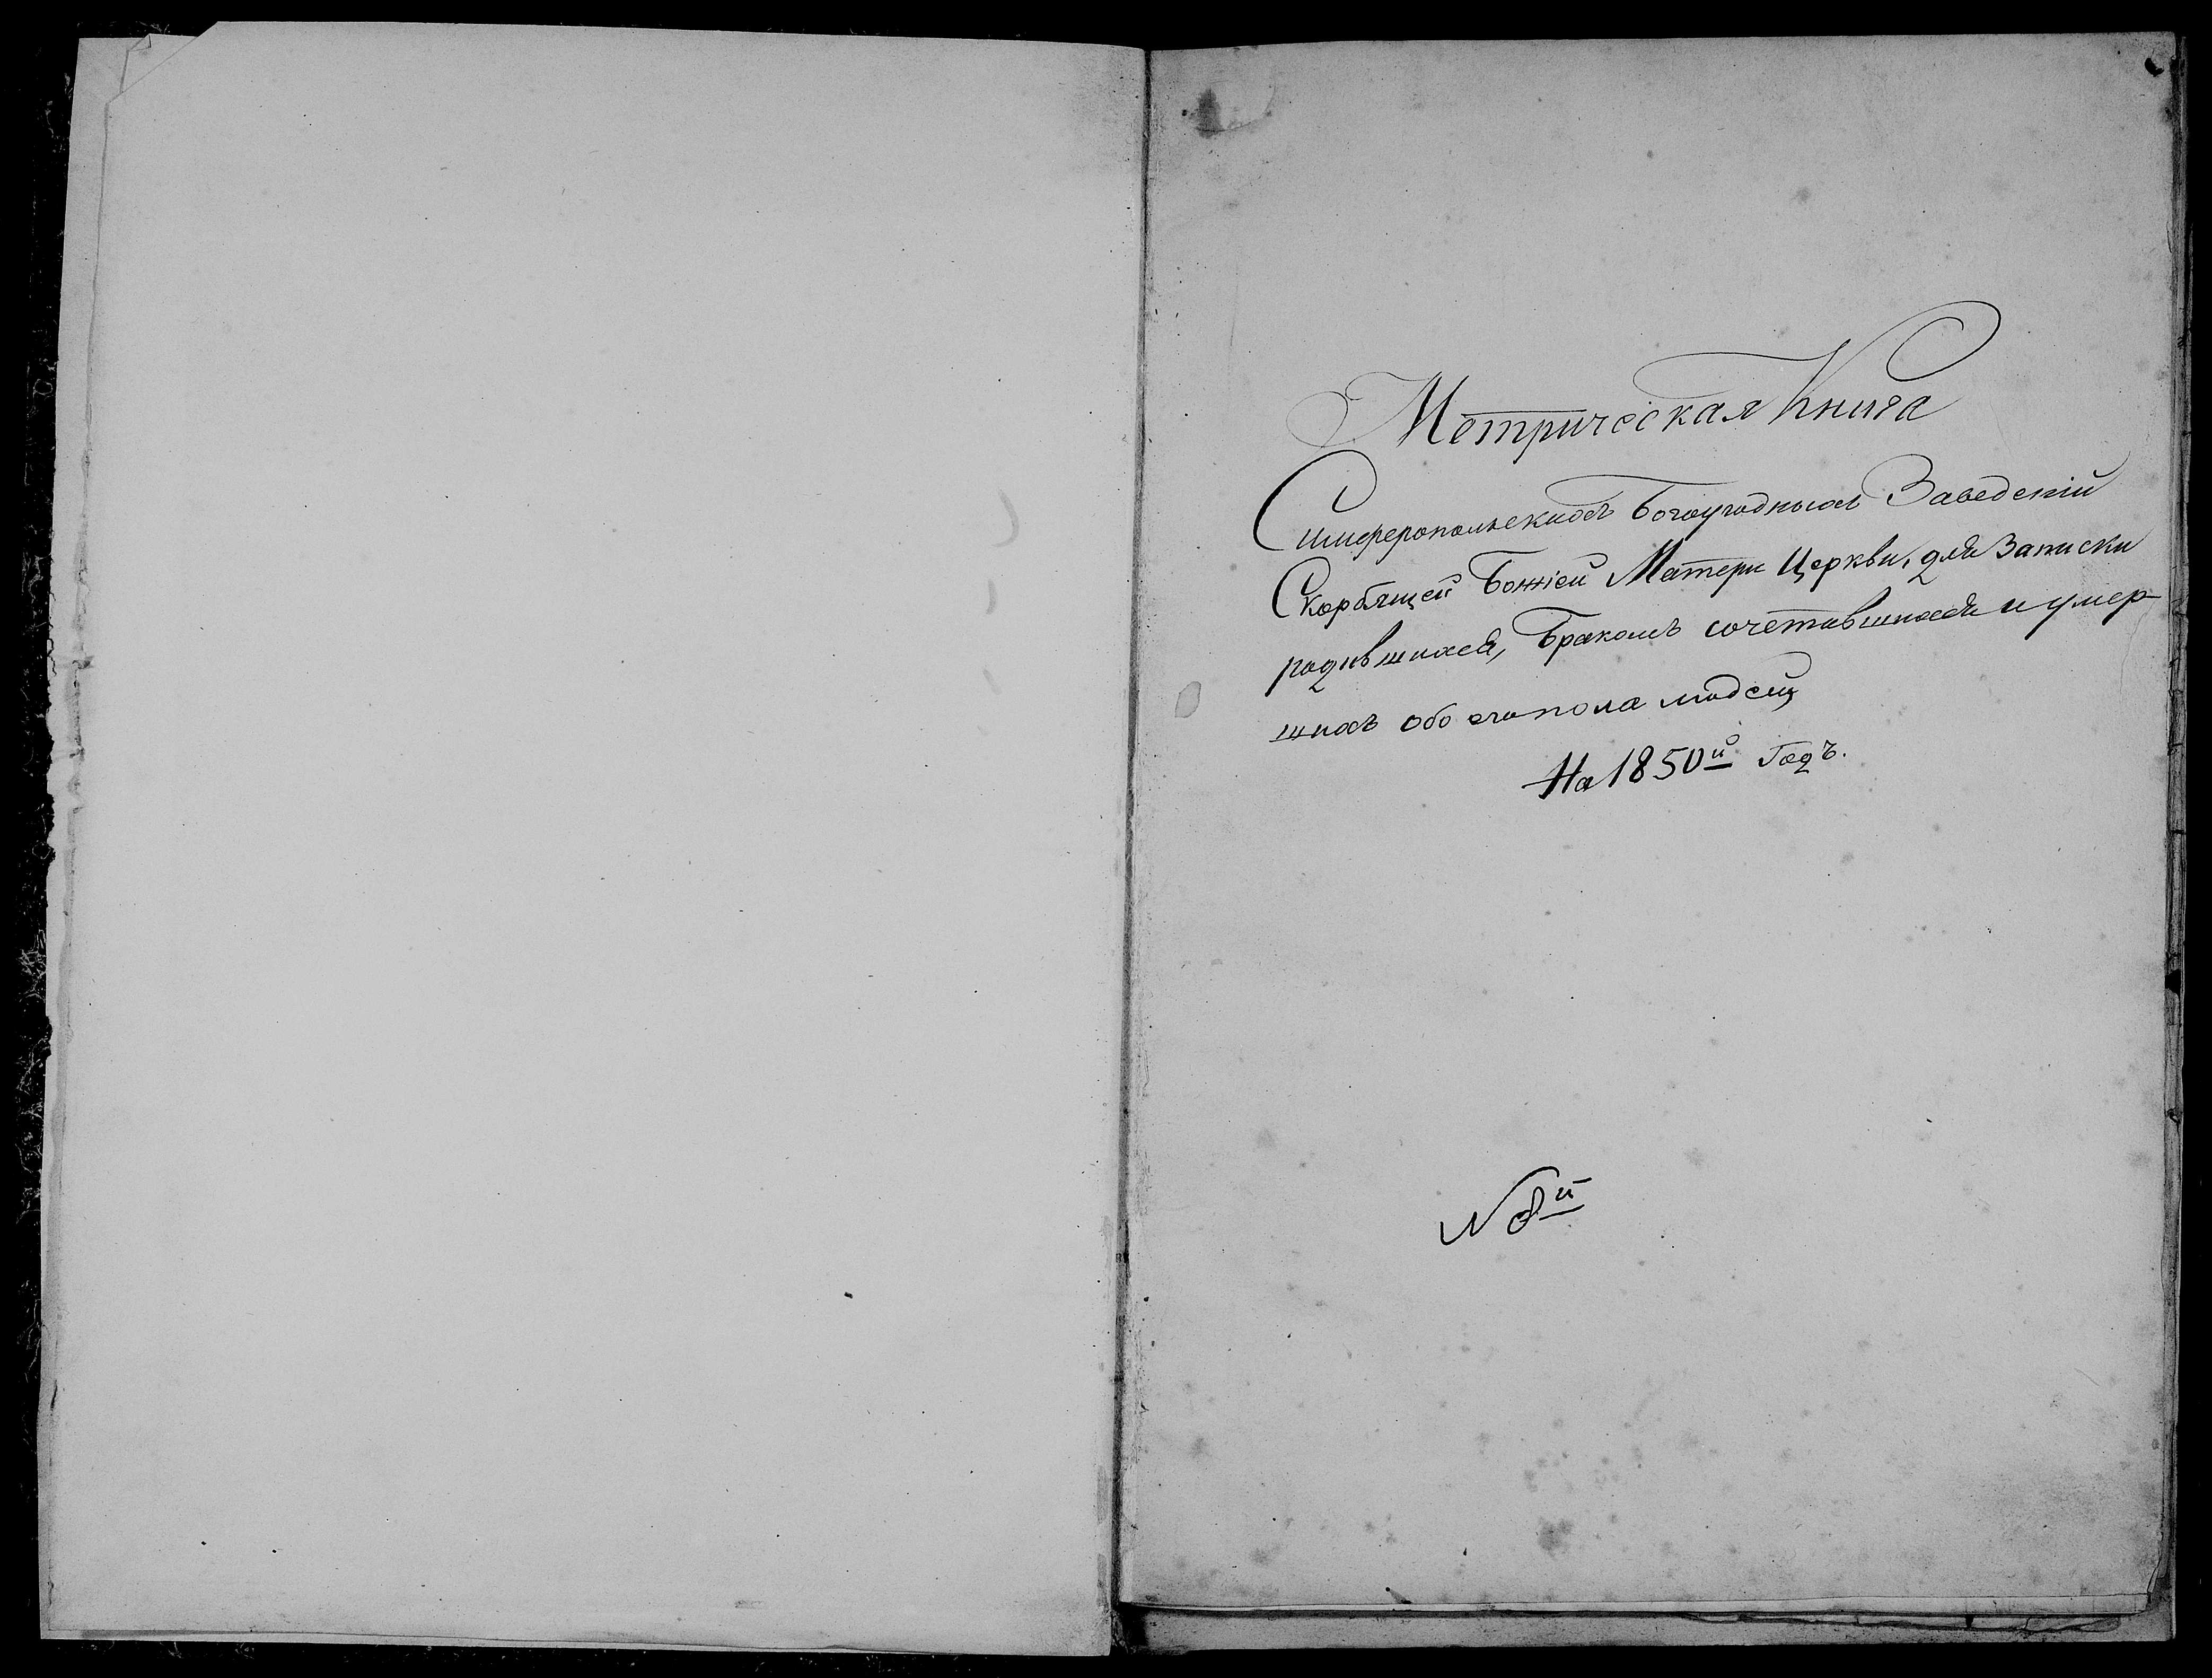 Метрическая Книга
Симферопольскихъ Богоугодныхъ Заведеній
Скорбящей Божіей Матери Церкви, для Записки
родившихся, Бракомъ сочетавшихся и умер-
шихъ обоего пола людей
На 1850й Годъ.
N 8й